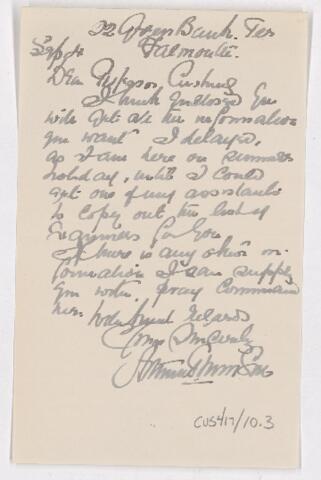 32 Green Bank. Ter
Falmouth.
Dear Professor Cushny
I think enclosed you
will get all the information
you want. I delayed,
as I am here on summer
holiday, until I could
get one of my assistants
to copy out the list of
Examiners for you
If there is any other in-
formation I can supply
you with, pray command
me. With kind regards
Yours Sincerely
CUS417/10.3